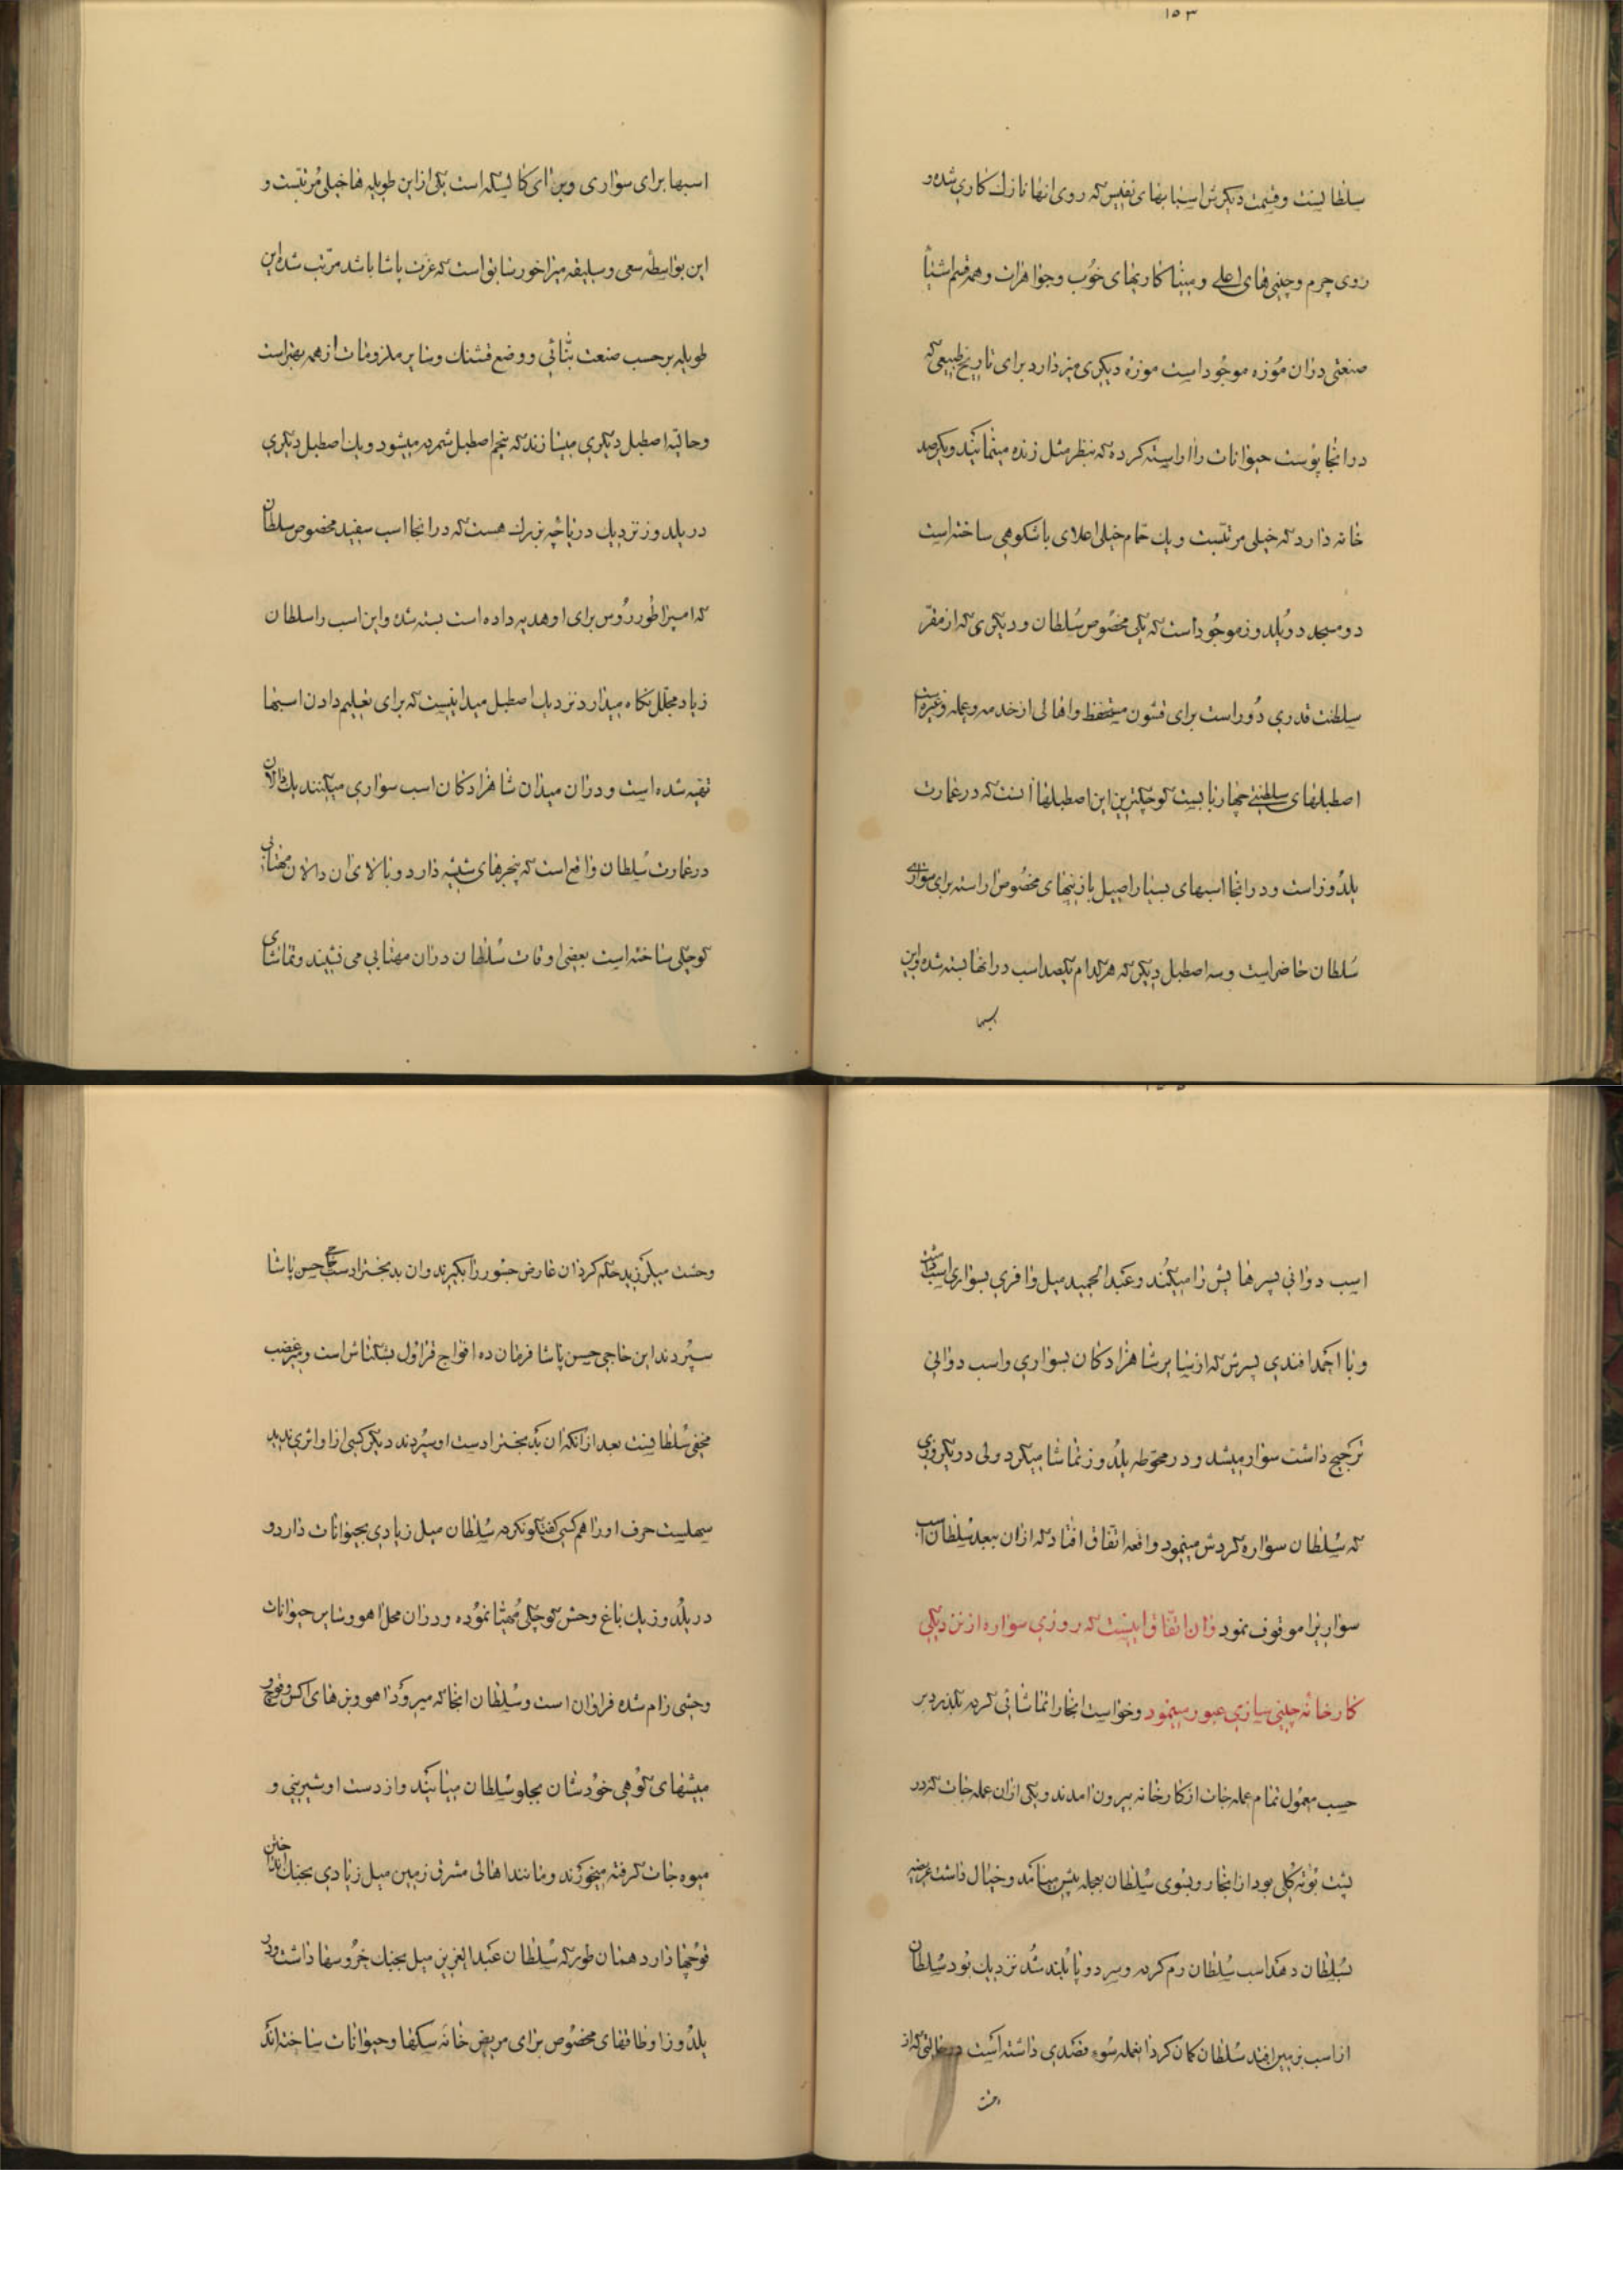 ۱۵۳
سلطانیست و قسمت دیگرش اسبابهای نفیس که روی انها نازك کاری شده و
روی چرم و چینی‌های اعلی و میناکاریهای خوب و جواهرات و همه قسم اشیاء
صنعتی دران موزه موجود است موزه دیگری نیز دارد برای تاریخ طبیعی که
در انجا پوست حیوانات را اراسته کرده که بنظر مثل زنده مینمایند و یکرصد
خانه دارد که خیلی مرتبست و یك حمام خیلی اعلای باشکوهی ساخته است
دو مسجد در یلدوز موجود است که یکی مخصوص سلطان و دیگری که از مقر
سلطنت قدری دور است برای قشون مستحفظ و اهالی از خدمه و عمله و غیره است
اصطبلهای سلطنتی چهار بابست کوچکترین این اصطبلها انست که در عمارت
یلدوز است و در انجا اسبهای بسیار اصیل با زینهای مخصوص اراسته برای سواری
سلطان حاضر است و سه اصطبل دیگر که هر کدام یکصد اسب در انها بسته شده و این
اسبها
اسبها برای سواری و برای کالسکه است یکی از این طویله ها خیلی مرتبست و
این بواسطه سعی و سلیقه میراخور سابق است که عزت پاشا باشد مرتب شده این
طویله بر حسب صنعت بنائی و وضع قشنك و سایر ملزومات از همه بهتر است
و حالیه اصطبل دیگری میسازند که پنجم اصطبل شمرده میشود و یك اصطبل دیگری
در یلدوز نزدیك دریاچه بزرك هست که در انجا اسب سفید مخصوص سلطان
که امپراطور روس برای او هدیه داده است بسته شده و این اسب را سلطان
زیاد مجلل نگاه میدارد نزدیك اصطبل میدانیست که برای تعلیم دادن اسبها
تهیه شده است و دران میدان شاهزادگان اسب سواری میکنند یك دالان
در عمارت سلطان واقع است که پنجرهای شیشه دارد و بالای ان دالان مهتابی
کوچکی ساخته است بعضی اوقات سلطان دران مهتابی می نشیند و تماشای
اسب دوانی پسرهایش را میکند و عبدالحمید میل وافری بسواری اسب داشت
و با احمد افندی پسرش که از سایر شاهزادگان بسواری و اسب دوانی
ترجیح داشت سوار میشد و در محوطه یلدوز تماشا میکرد ولی در یکروزی
که سلطان سواره گردش مینمود واقعه اتفاق افتاد که ازان ببعد سلطان اسب
سواریرا موقوف نمود و ان اتفاق اینست که روزی سواره از نزدیکی
کارخانه چینی سازی عبور مینمود و خواست انجا را تماشائی کرده بگذرد بر
حسب معمول تمام عمله جات از کارخانه بیرون امدند و یکی ازان عمله جات که در
پشت بوته گلی بود از انجا رو بسوی سلطان بعجله پیش میامد و خیال داشت عریضه
بسلطان دهد اسب سلطان رم کرده و سر دو پا بلند شد نزدیك بود سلطان
از اسب بزمین افتد سلطان گمان کرد انعمله سوء قصدی داشته است در حالتی که از
وحشت
وحشت میلرزید حکم کرد ان عارض جسور را بگیرند و ان بدبخترا دست حاجی حسن پاشا
سپردند این حاجی حسن پاشا فرمان ده افواج قراول بشکتاش است و میر غضب
مخفی سلطانیست بعد از انکه ان بدبخترا دست او سپردند دیگر کسی از او اثری ندید
سهلست حرف او را هم کسی گفتگو نکرد سلطان میل زیادی بحیوانات دارد و
در یلدوز یك باغ وحش کوچکی مهیا نموده و دران محل اهو و سایر حیوانات
وحشی رام شده فراوان است و سلطان انجا که میرود اهو و بزهای اکس و قوچ و
میشهای کوهی خودشان بجلو سلطان میایند و از دست او شیرینی و
میوه جات گرفته میخورند و مانند اهالی مشرق زمین میل زیادی بجنك انداختن
قوچها دارد همان طور که سلطان عبدالعزیز میل بجنك خروسها داشت و در
یلدوز اوطاقهای مخصوص برای مریض خانه سگها و حیوانات ساخته اند